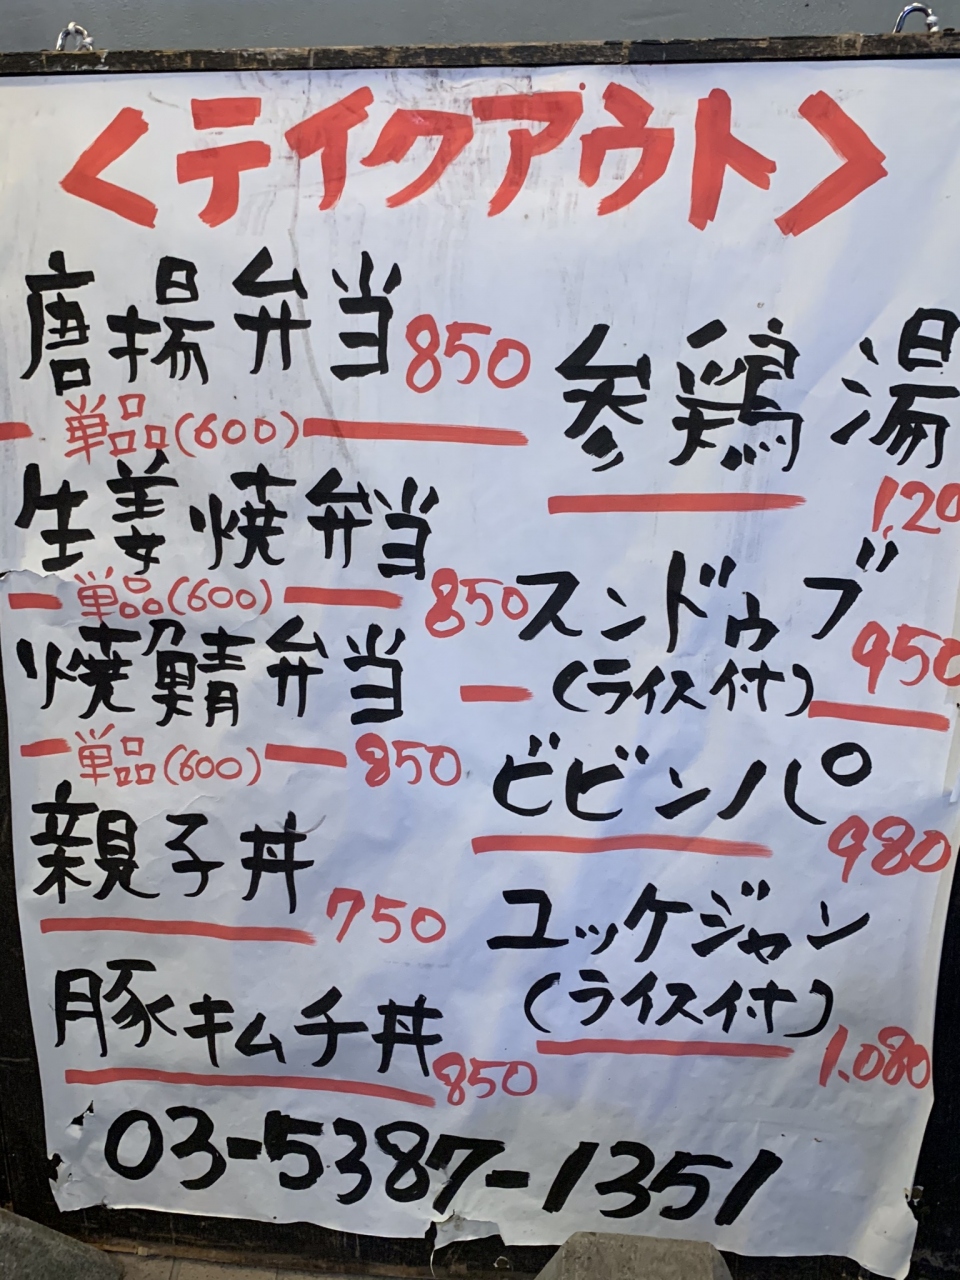 <テイクアウト>
唐揚弁当 850
単品(600)
生姜焼弁当
単品(600) 850
焼鯖弁当
単品(600) 850
親子丼
750
豚キムチ丼
850
参鶏湯
1.20
スンドゥブ
(ライス付) 950
ビビンパ
980
ユッケジャン
(ライス付)
1.080
03-5387-1351